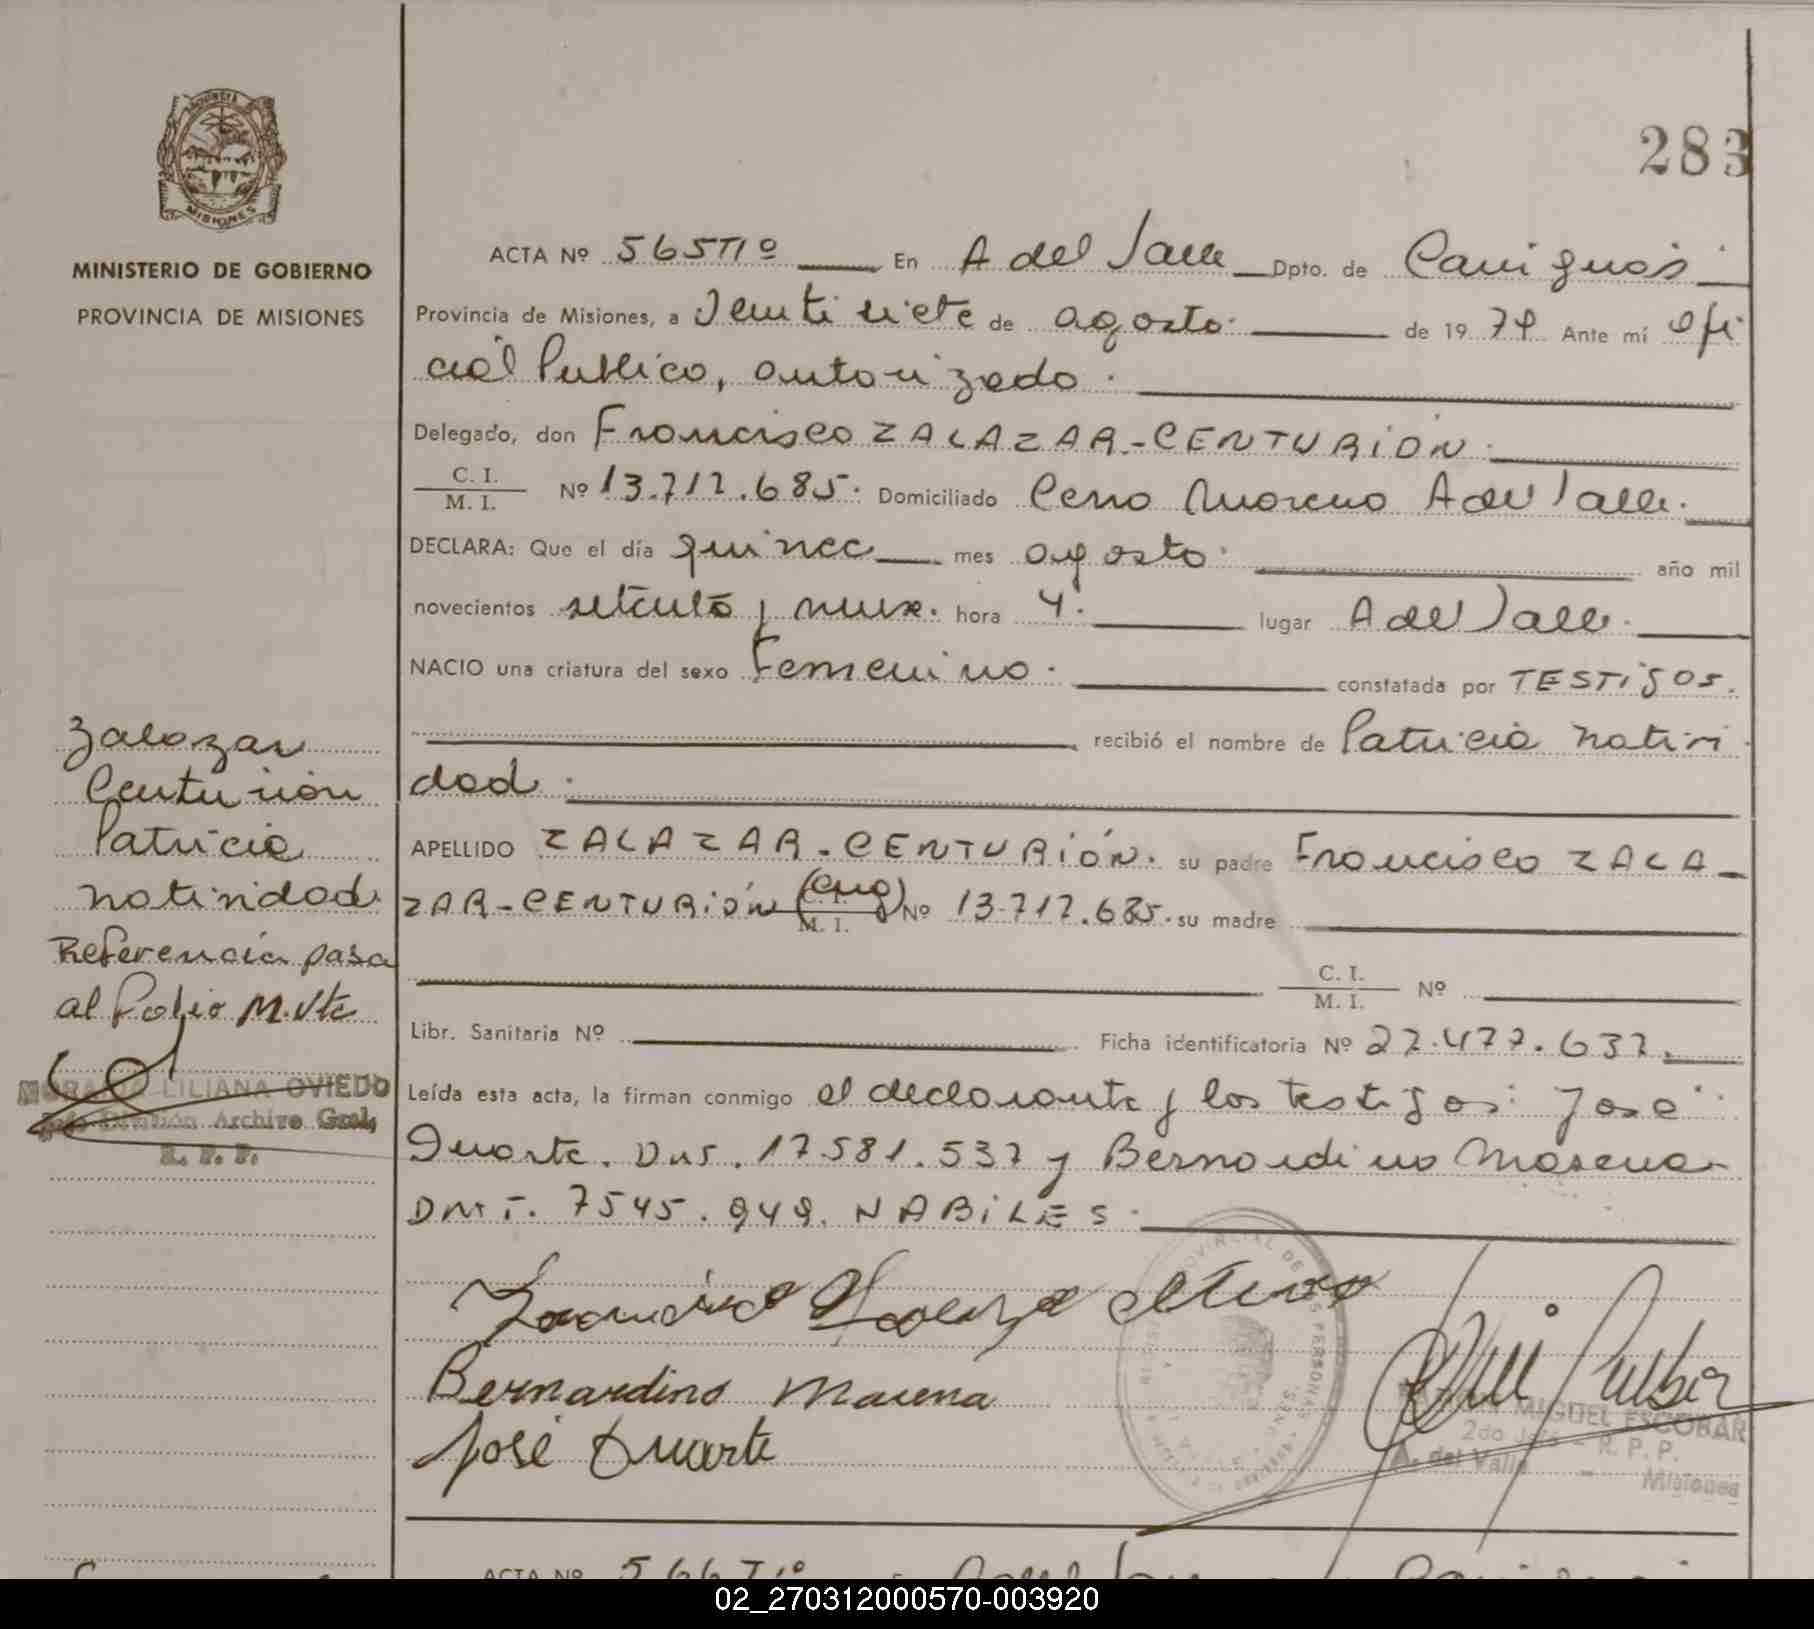 283
MINISTERIO DE GOBIERNO
PROVINCIA DE MISIONES
ACTA Nº 565 TIº En A del Valle Dpto. de Cainguás
Provincia de Misiones, a Veinti siete de agosto. de 1979 Ante mí ofi
cial Publico, autorizado.
Delegado, don Francisco ZALAZAR-CENTURIÓN.
C. I.
M. I. Nº 13.717.685. Domiciliado Cerro Moreno A del Valle.
DECLARA: Que el día quince mes agosto. año mil
novecientos setenta y nueve. hora 4. lugar A del Valle.
NACIO una criatura del sexo Femenino. constatada por TESTIGOS.
recibió el nombre de Patricia Nativi
dad.
APELLIDO ZALAZAR-CENTURIÓN. su padre Francisco ZALA-
ZAR-CENTURIÓN C. I.
M. I. Nº 13.717.685. su madre
C. I.
M. I. Nº
Libr. Sanitaria Nº Ficha identificatoria Nº 27.477.637.
Leída esta acta, la firman conmigo el declarante y los testigos: José
Duarte. Dni. 17.581.537 y Bernardino Marena
DNI. 7545.949. HABILES.
Zalazar
Centurión
Patricia
Natividad
Referencia pasa
al Folio M. Vta
LILIANA OVIEDO
División Archivo Gral,
R. P. P.
Bernardino Marena
José Duarte
MIGUEL ESCOBAR
2do Jefe - R. P. P.
A. del Valle - Misiones
ACTA Nº 566 TIº
02_270312000570-003920